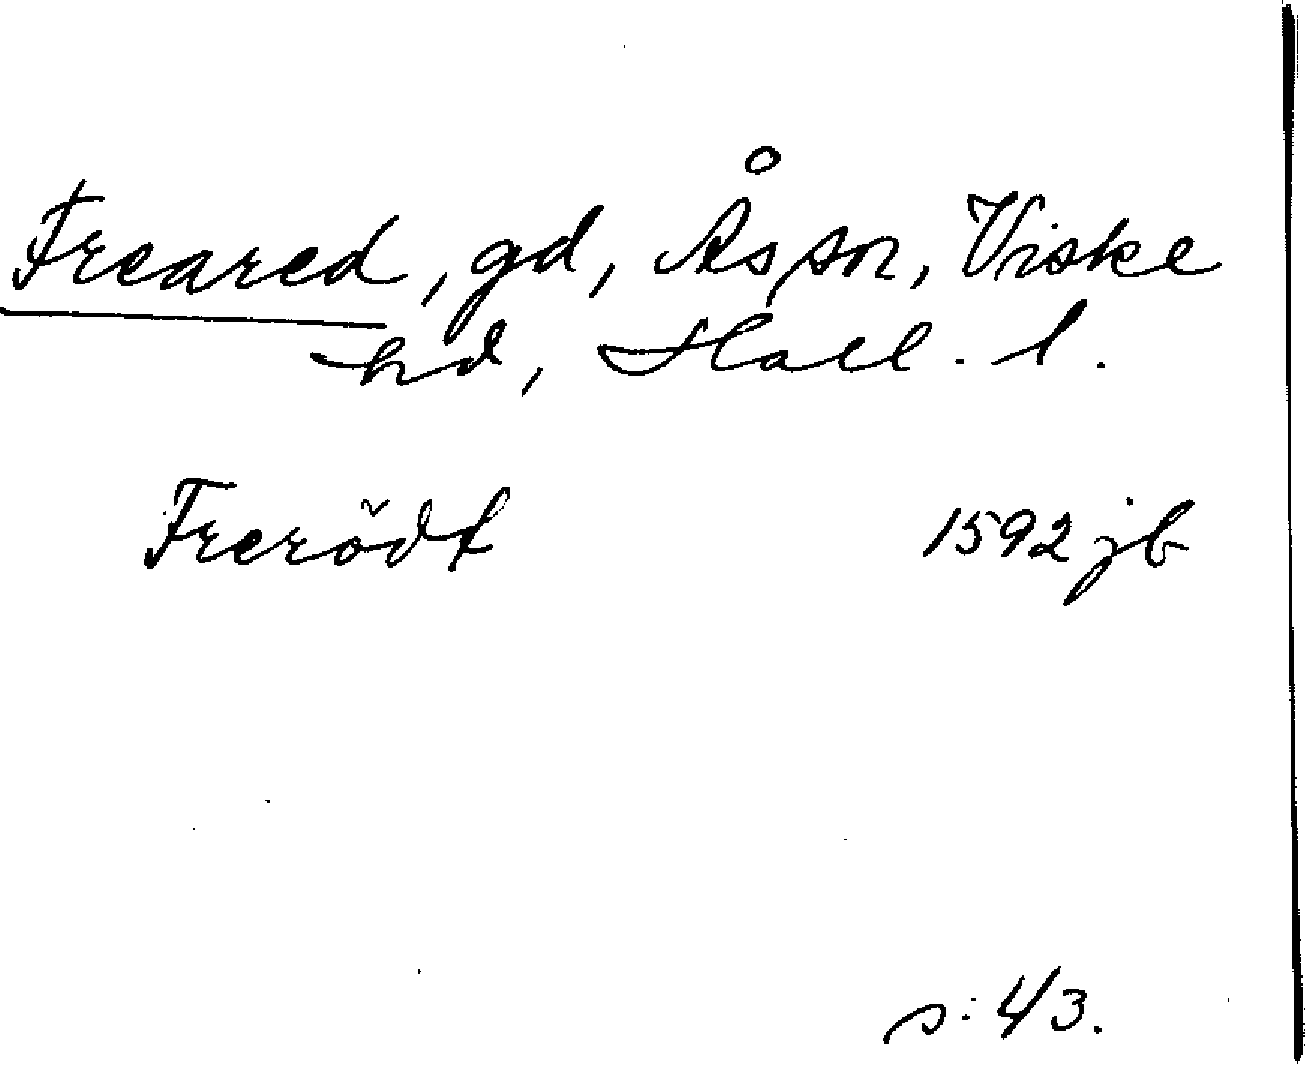 Freared, gd, Ås sn, Viske
hd, Hall. l.
Frerödt 1592 jb
s: 43.